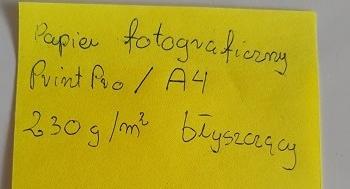 Papier fotograficzny
Print Pro / A4
230 g/m² błyszczący